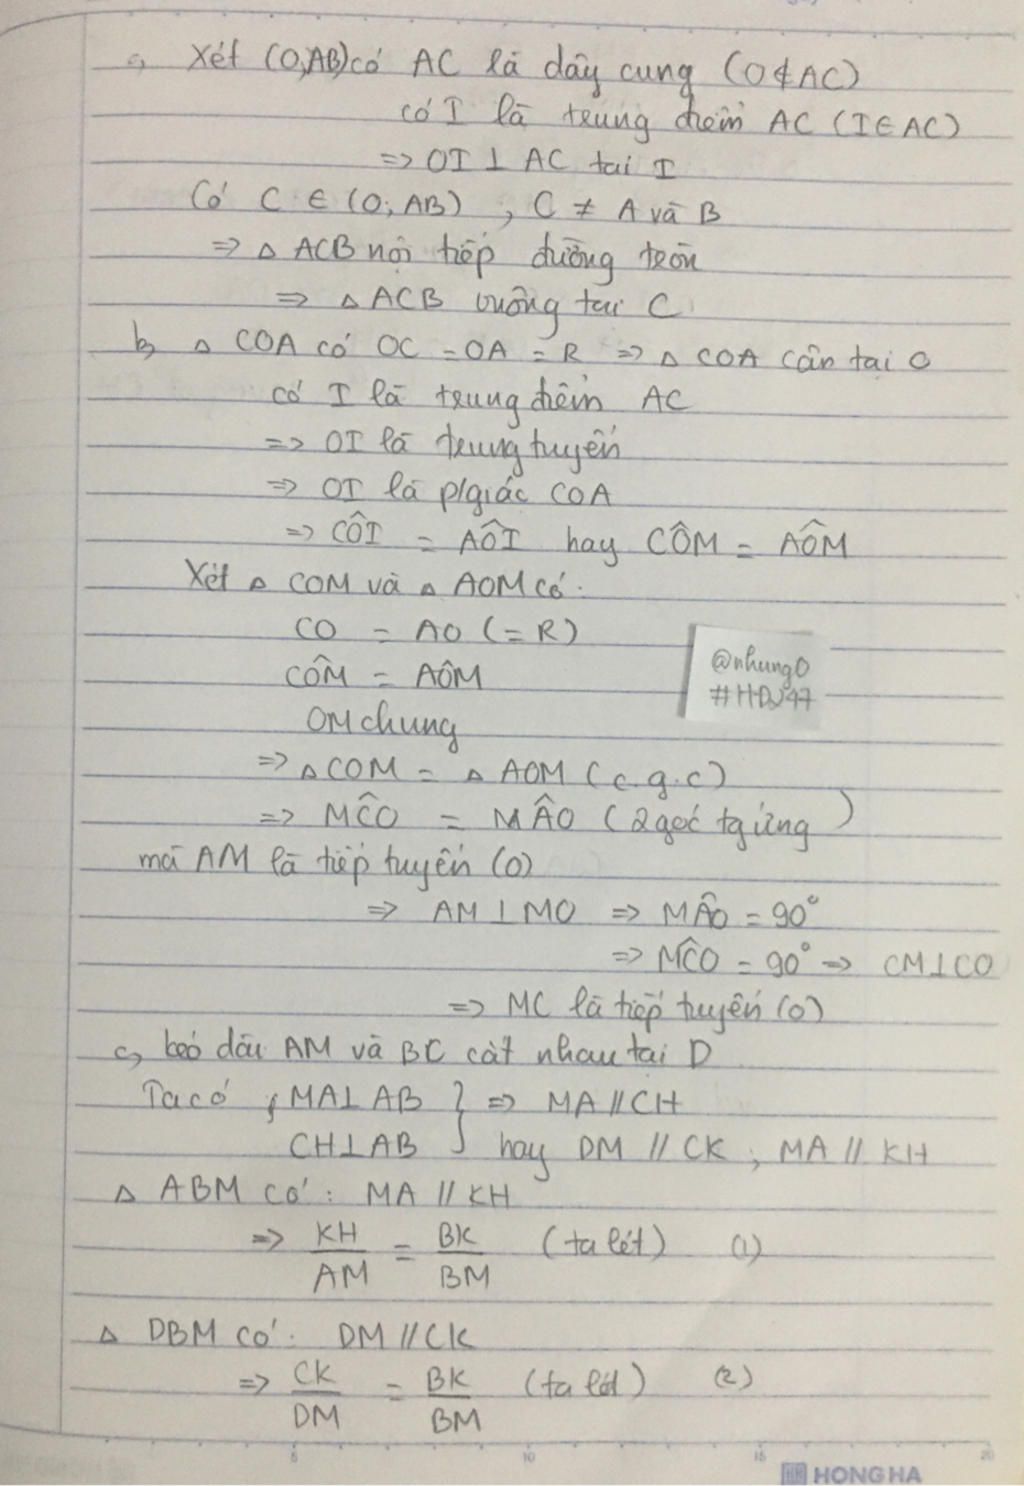 a, Xét (O;AB) có AC là dây cung (O∉AC)
có I là trung điểm AC (I∈AC)
=> OI ⊥ AC tại I
Có C ∈ (O; AB) , C ≠ A và B
=> △ ACB nội tiếp đường tròn
=> △ ACB vuông tại C
b, △ COA có OC = OA = R => △ COA cân tại O
có I là trung điểm AC
=> OI là trung tuyến
=> OI là p/giác COA
=> CÔI = AÔI hay CÔM = AÔM
Xét △ COM và △ AOM có:
CO = AO (= R)
CÔM = AÔM
OM chung
=> △ COM = △ AOM (c.g.c)
=> MĈO = MÂO (2 góc tg ứng)
mà AM là tiếp tuyến (O)
=> AM ⊥ MO => MÂO = 90°
=> MĈO = 90° => CM ⊥ CO
=> MC là tiếp tuyến (O)
c, kéo dài AM và BC cắt nhau tại D
Ta có { MA ⊥ AB } => MA // CH
CH ⊥ AB } hay DM // CK ; MA // KH
△ ABM có: MA // KH
=> KH/AM = BK/BM (ta lét) (1)
△ DBM có: DM // CK
=> CK/DM = BK/BM (ta lét) (2)
@nhung0
#HDJ47
5 10 15 20
HONG HA